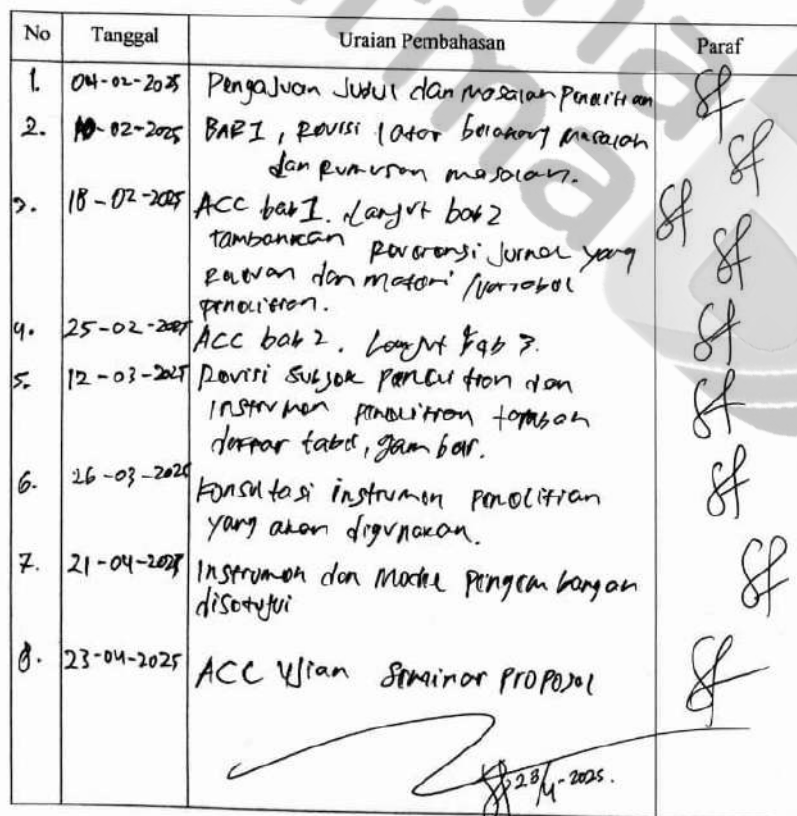 No Tanggal Uraian Pembahasan Paraf
1. 04-02-2025 Pengajuan Judul dan masalah Penelitian
2. 10-02-2025 BAB I, Revisi latar belakang masalah
dan Rumusan masalah.
3. 18-02-2025 ACC bab I. Lanjut bab 2
tambahkan Referensi Jurnal yang
Relevan dan materi/variabel
penelitian.
4. 25-02-2025 ACC bab 2. Lanjut bab 3.
5. 12-03-2025 Revisi Subjek Penelitian dan
Instrumen penelitian tambah
daftar tabel, gambar.
6. 26-03-2025 Konsultasi instrumen penelitian
yang akan digunakan.
7. 21-04-2025 Instrumen dan Model pengembangan
disetujui
8. 23-04-2025 ACC Ujian Seminar Proposal
23/4-2025.